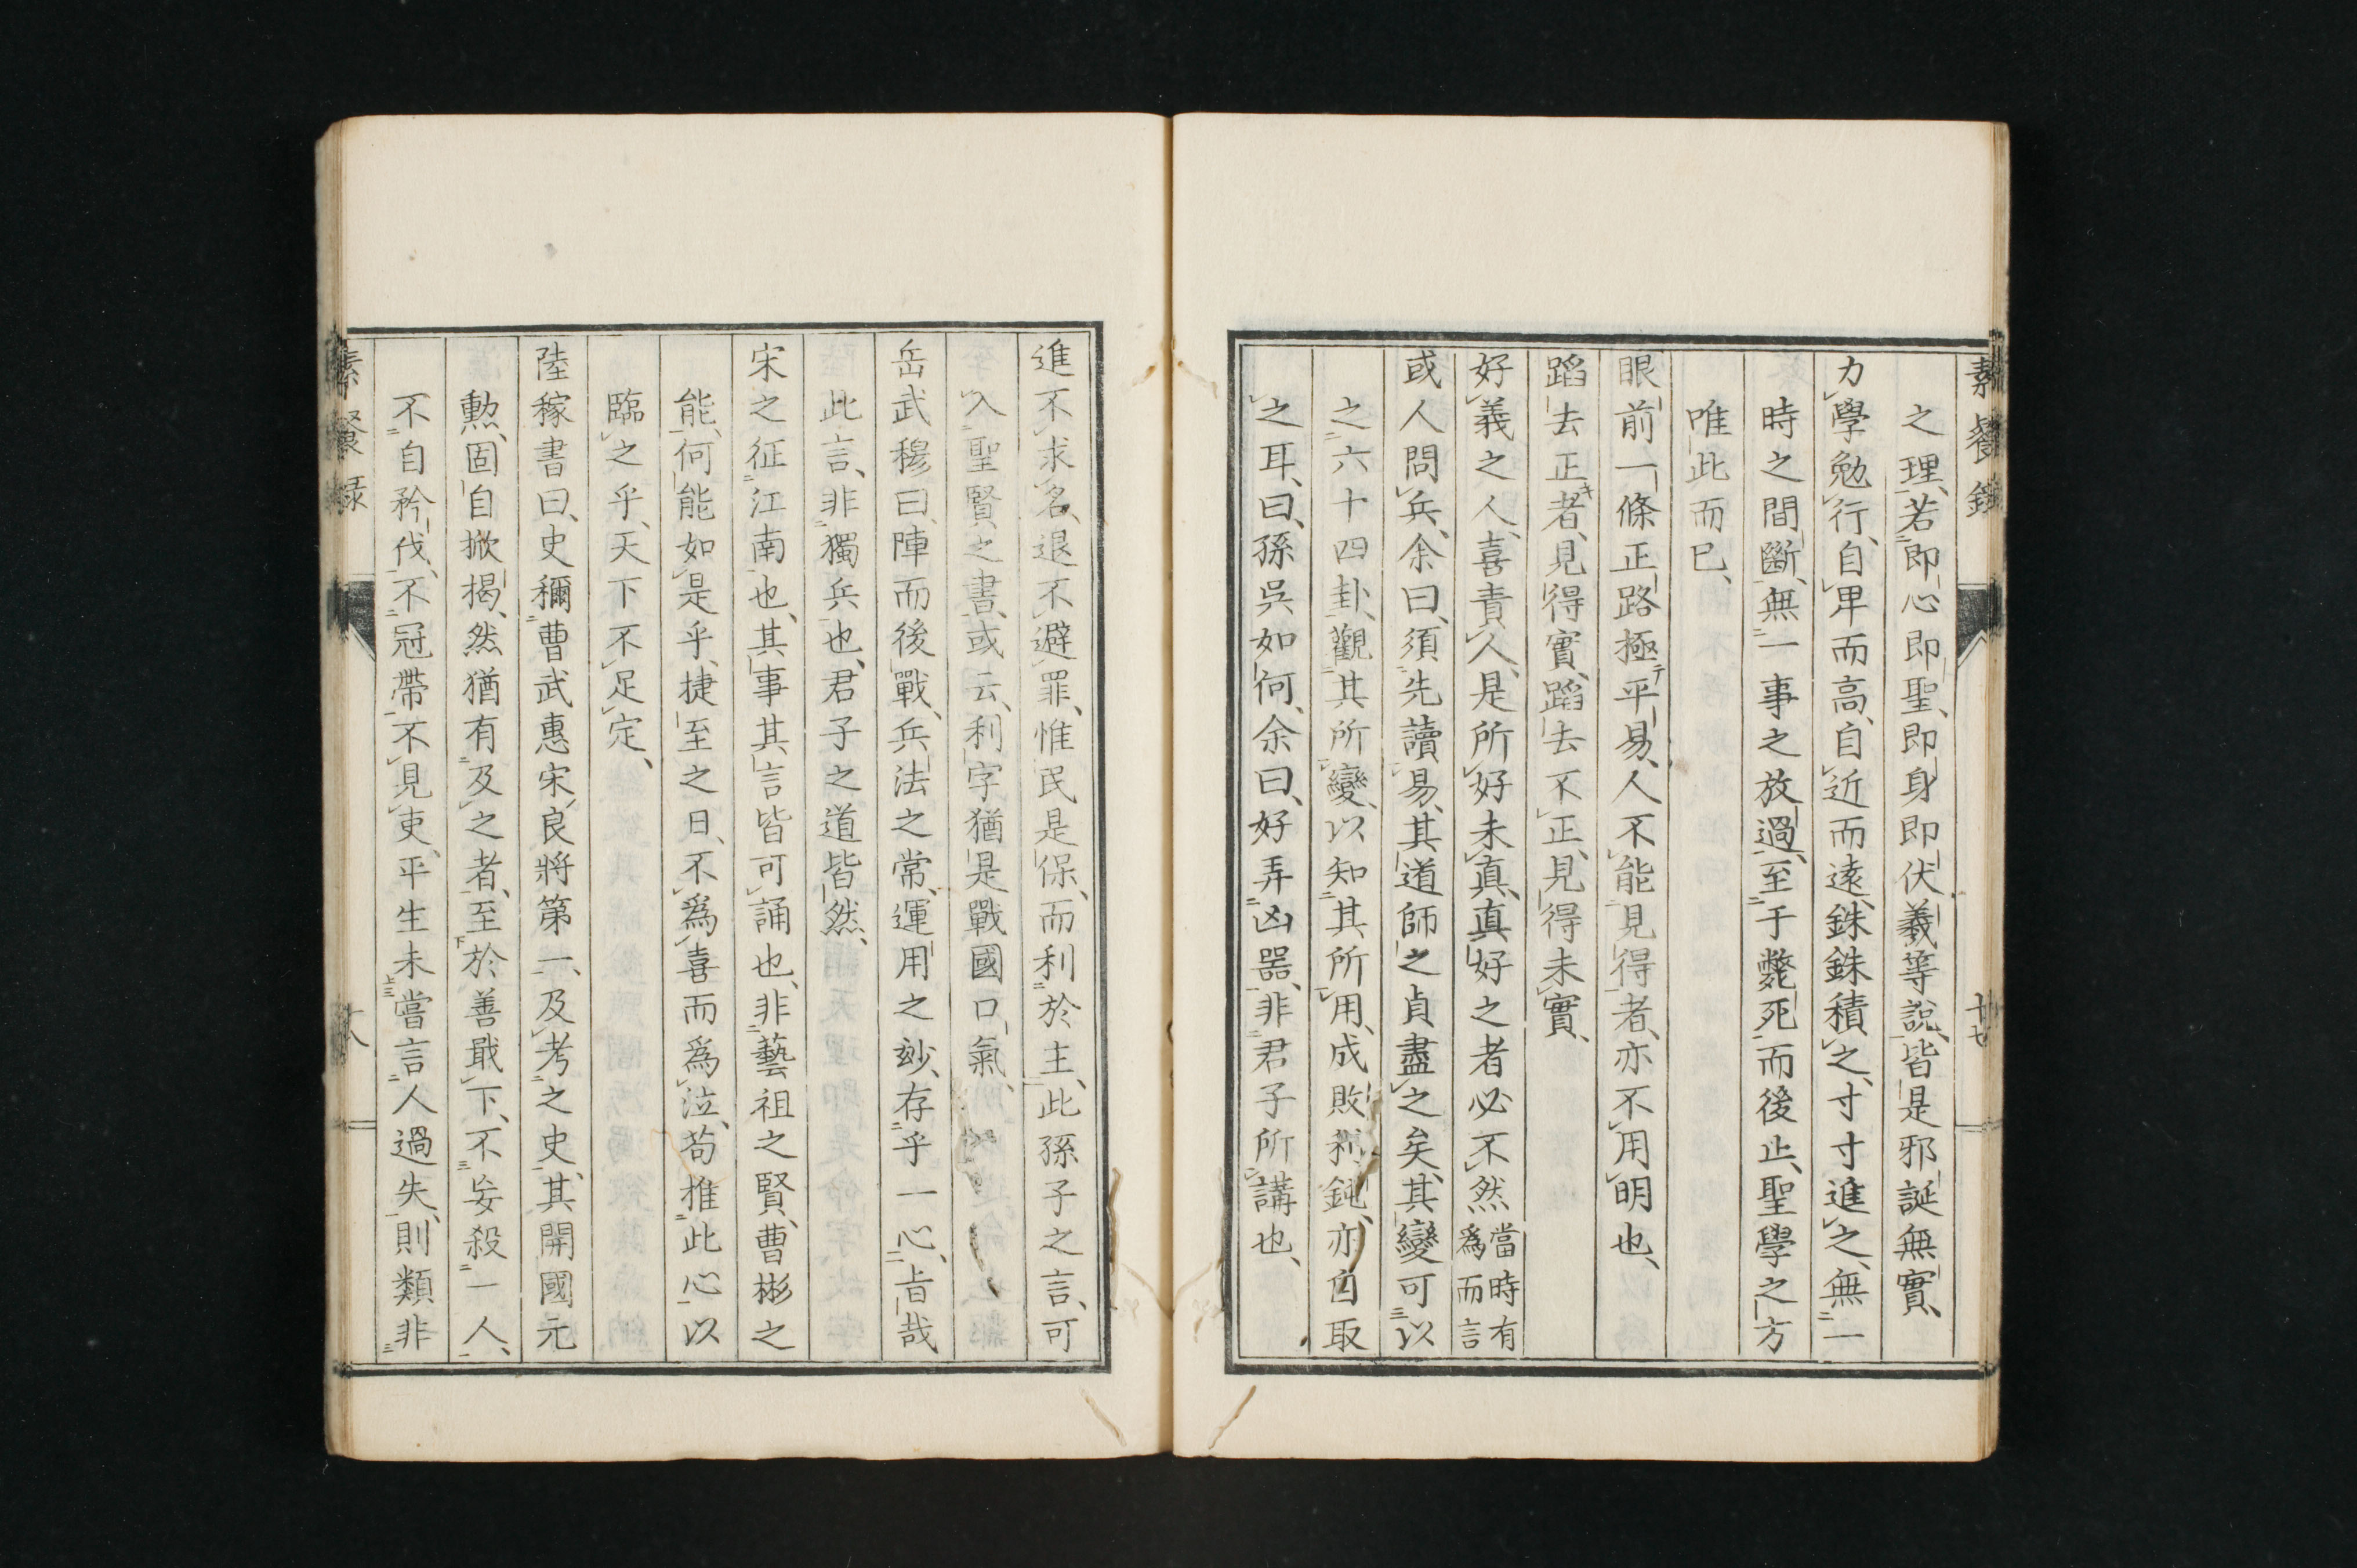 素餐錄
十七
之理、若即心即聖、即身即伏羲等說、皆是邪誕無實、
力學勉行、自卑而高、自近而遠、銖銖積之、寸寸進之、無一
時之間斷、無一事之放過、至于斃死而後止、聖學之方
唯此而已、
眼前一條正路極平易、人不能見得者、亦不用明也、
蹈去正者、見得實、蹈去不正、見得未實、
好義之人、喜責人、是所好未真、真好之者必不然當時有爲而言
或人問兵、余曰、須先讀易、其道師之貞盡之矣、其變可以
之六十四卦、觀其所變、以知其所用、成敗利鈍、亦自取
之耳、曰、孫吳如何、余曰、好弄凶器、非君子所講也、
進不求名、退不避罪、惟民是保、而利於主、此孫子之言、可
入聖賢之書、或云、利字猶是戰國口氣、
岳武穆曰、陣而後戰、兵法之常、運用之妙、存乎一心、旨哉
此言、非獨兵也、君子之道皆然、
宋之征江南也、其事其言皆可誦也、非藝祖之賢、曹彬之
能、何能如是乎、捷至之日、不爲喜而爲泣、苟推此心以
臨之乎、天下不足定、
陸稼書曰、史稱曹武惠宋良將第一、及考之史、其開國元
勲、固自掀揭、然猶有及之者、至於善戢下、不妄殺一人、
不自矜伐、不冠帶不見吏、平生未嘗言人過失、則類非
素餐錄
十八